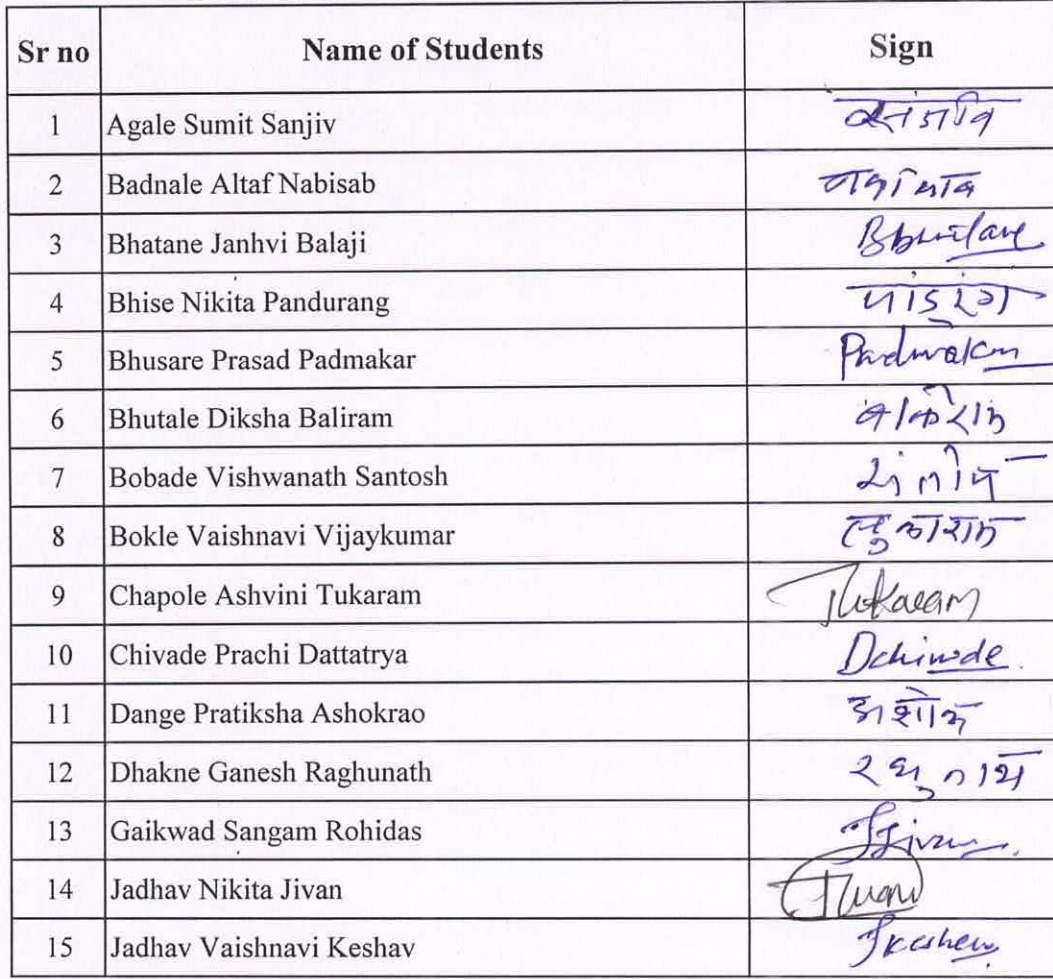 Sr no Name of Students Sign
1 Agale Sumit Sanjiv संजीव
2 Badnale Altaf Nabisab
3 Bhatane Janhvi Balaji
4 Bhise Nikita Pandurang पांडुरंग
5 Bhusare Prasad Padmakar Padmakar
6 Bhutale Diksha Baliram
7 Bobade Vishwanath Santosh संतोष
8 Bokle Vaishnavi Vijaykumar तुकाराम
9 Chapole Ashvini Tukaram Tukaram
10 Chivade Prachi Dattatrya Dchivade
11 Dange Pratiksha Ashokrao अशोक
12 Dhakne Ganesh Raghunath रघुनाथ
13 Gaikwad Sangam Rohidas
14 Jadhav Nikita Jivan
15 Jadhav Vaishnavi Keshav